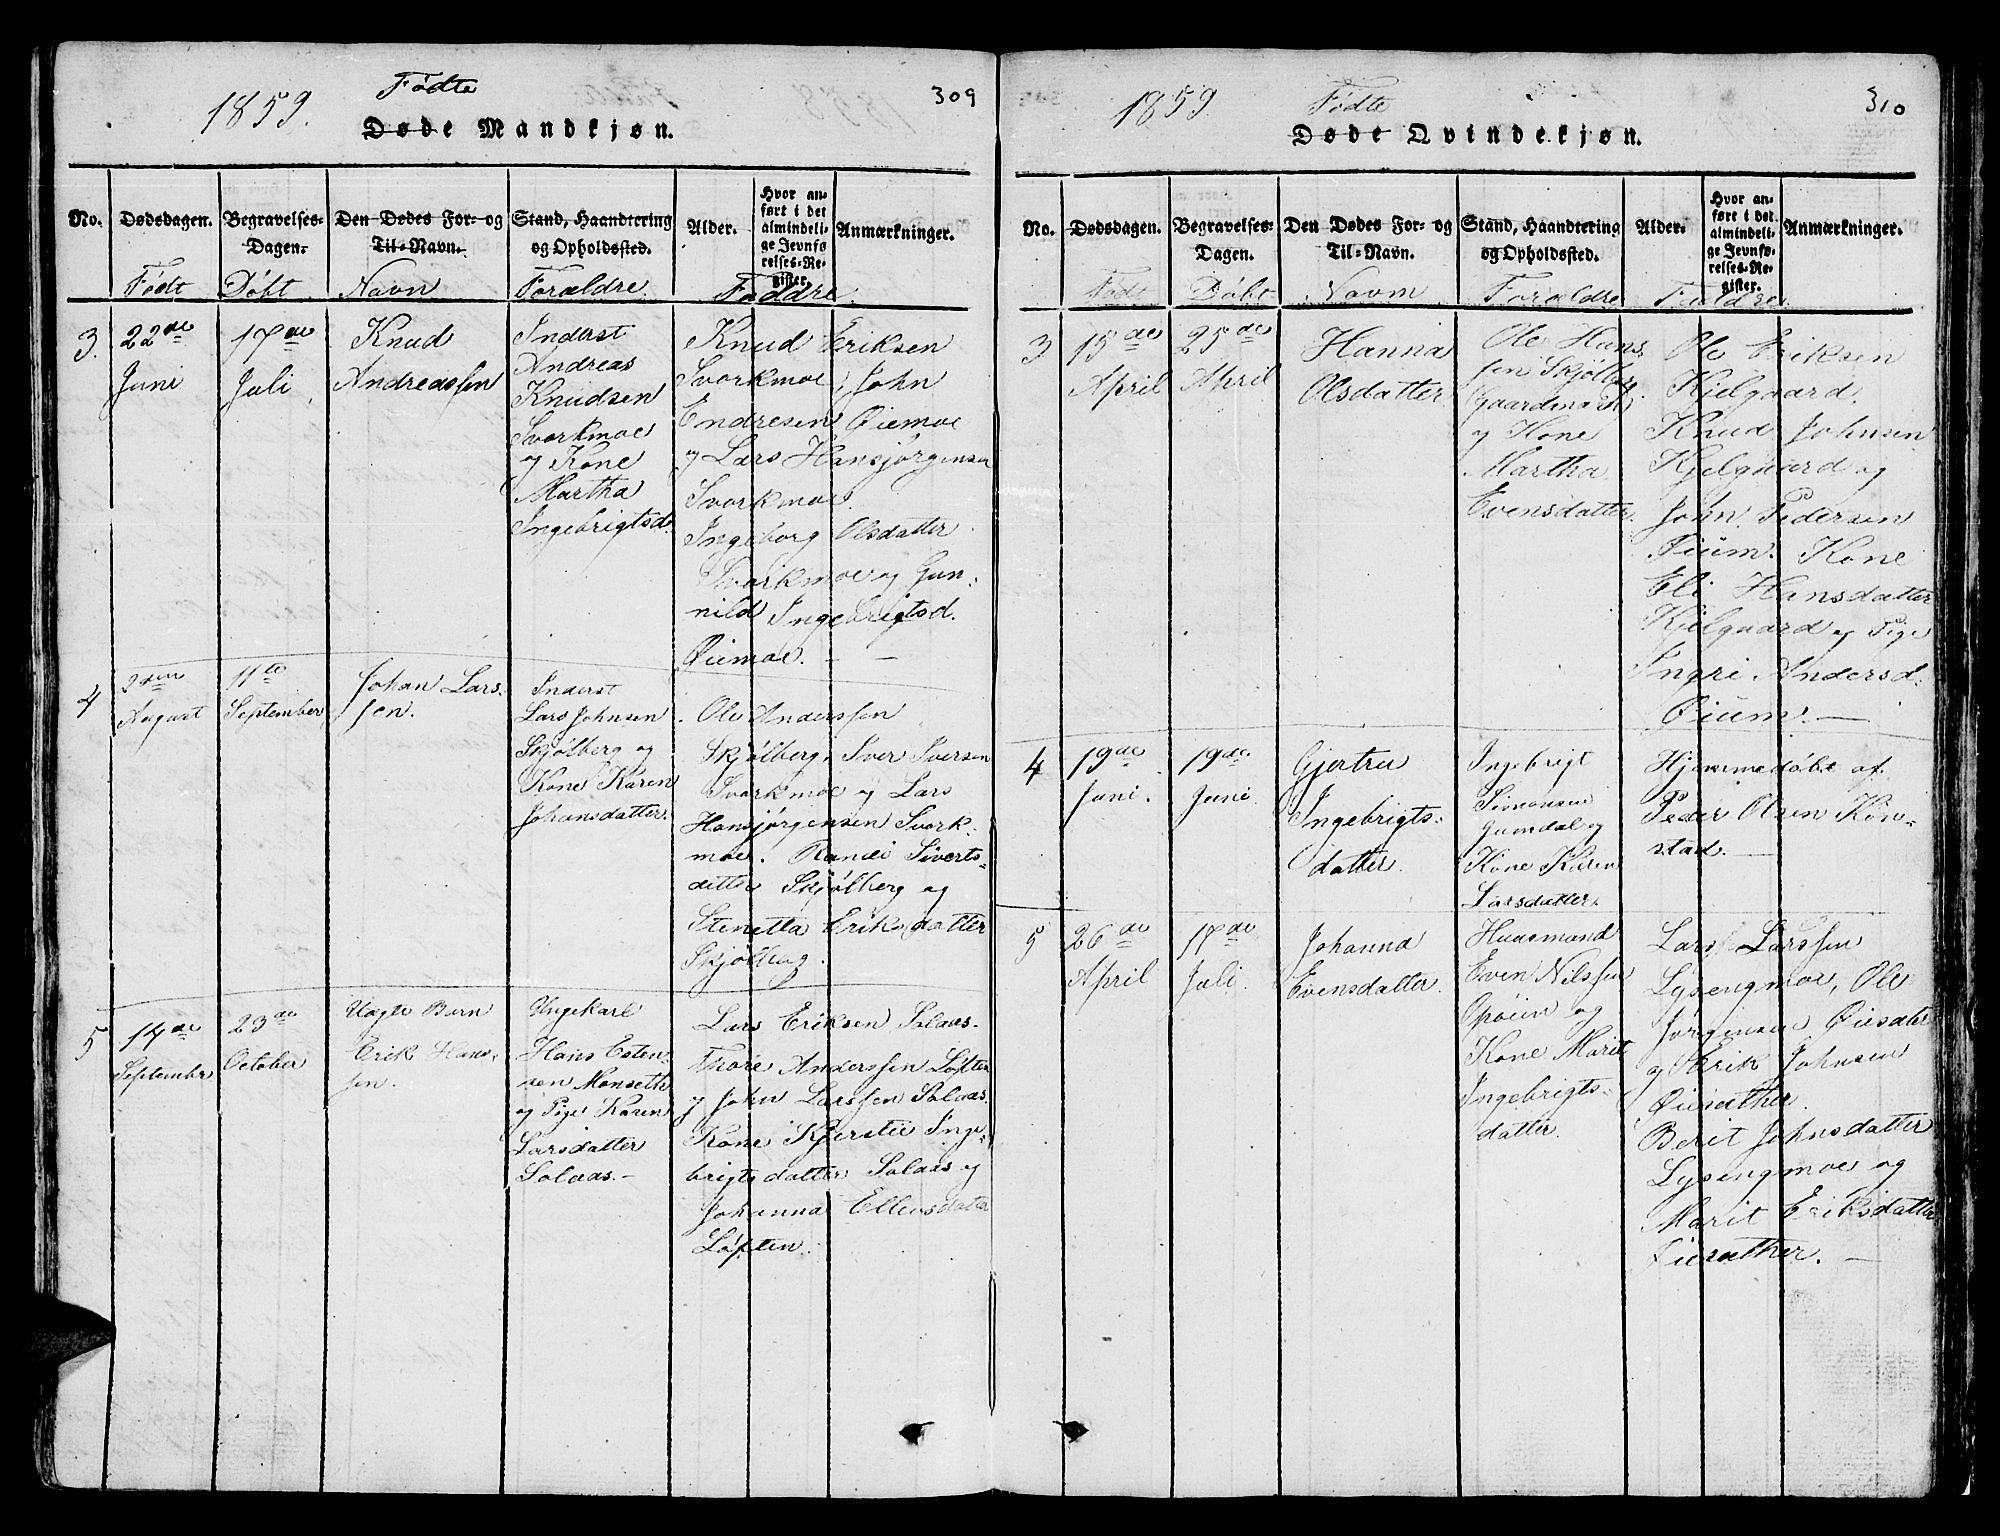 1859. Fødte 309
Døde Mandkjøn.
No. Dødsdagen. Begravelses-Dagen. Den Dødes For- og Til-Navn. Stand, Haandtering og Opholdssted. Alder. Hvor anført i det almindelige Jevnførelses-Register. Anmærkninger.
Født Døbt Navn Forældre Faddre.
3. 22de Juni
17de Juli
Knud
Andreassen
Inderst
Andreas
Knudsen
Svorkmoe
og Kone
Martha
Ingebrigtsd.
Knud Eriksen
Svorkmoe, John
Endresen Øiemoe
og Lars Hansjørgensen
Svorkmoe.
Ingeborg Olsdatter
Svorkmoe og Gun-
nild Ingebrigtsd.
Øiemoe. —
4 2den August
11te September
Johan Lars-
sen.
Inderst
Lars Johnsen
Skjølberg og
Kone Karen
Johansdatter.
Ole Anderssen
Skjølberg, Iver Iversen
Svorkmoe og Lars
Hansjørgensen Svork-
moe. Randi Siverts-
datter Skjølberg og
Stenetta Eriksdatter
Skjølberg.
5 14de September
23de October
Uægte Barn
Erik Hans-
sen.
Ungekarl
Hans Esten-
sen Monseth
og Pige Karen
Larsdatter
Solaas. —
Lars Eriksen Solaas.
Thore Anderssen Løften
og John Larssen Solaas.
Kone Kjerstie Inge-
brigtsdatter Solaas og
Johanna Ellensdatter
Løften.
1859. Fødte 310
Døde Qvindekjøn.
No. Dødsdagen. Begravelses-Dagen. Den Dødes For- og Til-Navn. Stand, Haandtering og Opholdssted. Alder. Hvor anført i det almindelige Jevnførelses-Register. Anmærkninger.
Født Døbt Navn Forældre Faddre
3 15de April
25de April
Hanna
Olsdatter
Ole Hans-
sen Skjølberg
og Kone
Martha
Evensdatter.
Ole Eriksen
Kjelgaard.
Knud Johnsen
Kjelgaard og
John Pedersen
Øium. Kone
Eli Hansdatter
Kjelgaard og Pige
Ingri Andersd.
Øium. —
4 19de Juni.
19de Juni.
Gjertru
Ingebrigts-
datter.
Ingebrigt
Simonsen
Gumdal og
Kone Karen
Larsdatter.
Hjemmedøbt af
Peder Olsen Kon-
stad. —
5 26de April
17de Juli.
Johanna
Evensdatter.
Huusmand
Even Nilssen
og
Kone Marit
Ingebrigts-
datter.
Lars Larssen
Lysengmoe, Ole
Jørgensen
og Erik Johnsen
Øiesæther.
Berit Johnsdatter
Lysengmoe og
Marit Eriksdatter
Øiesæther. —